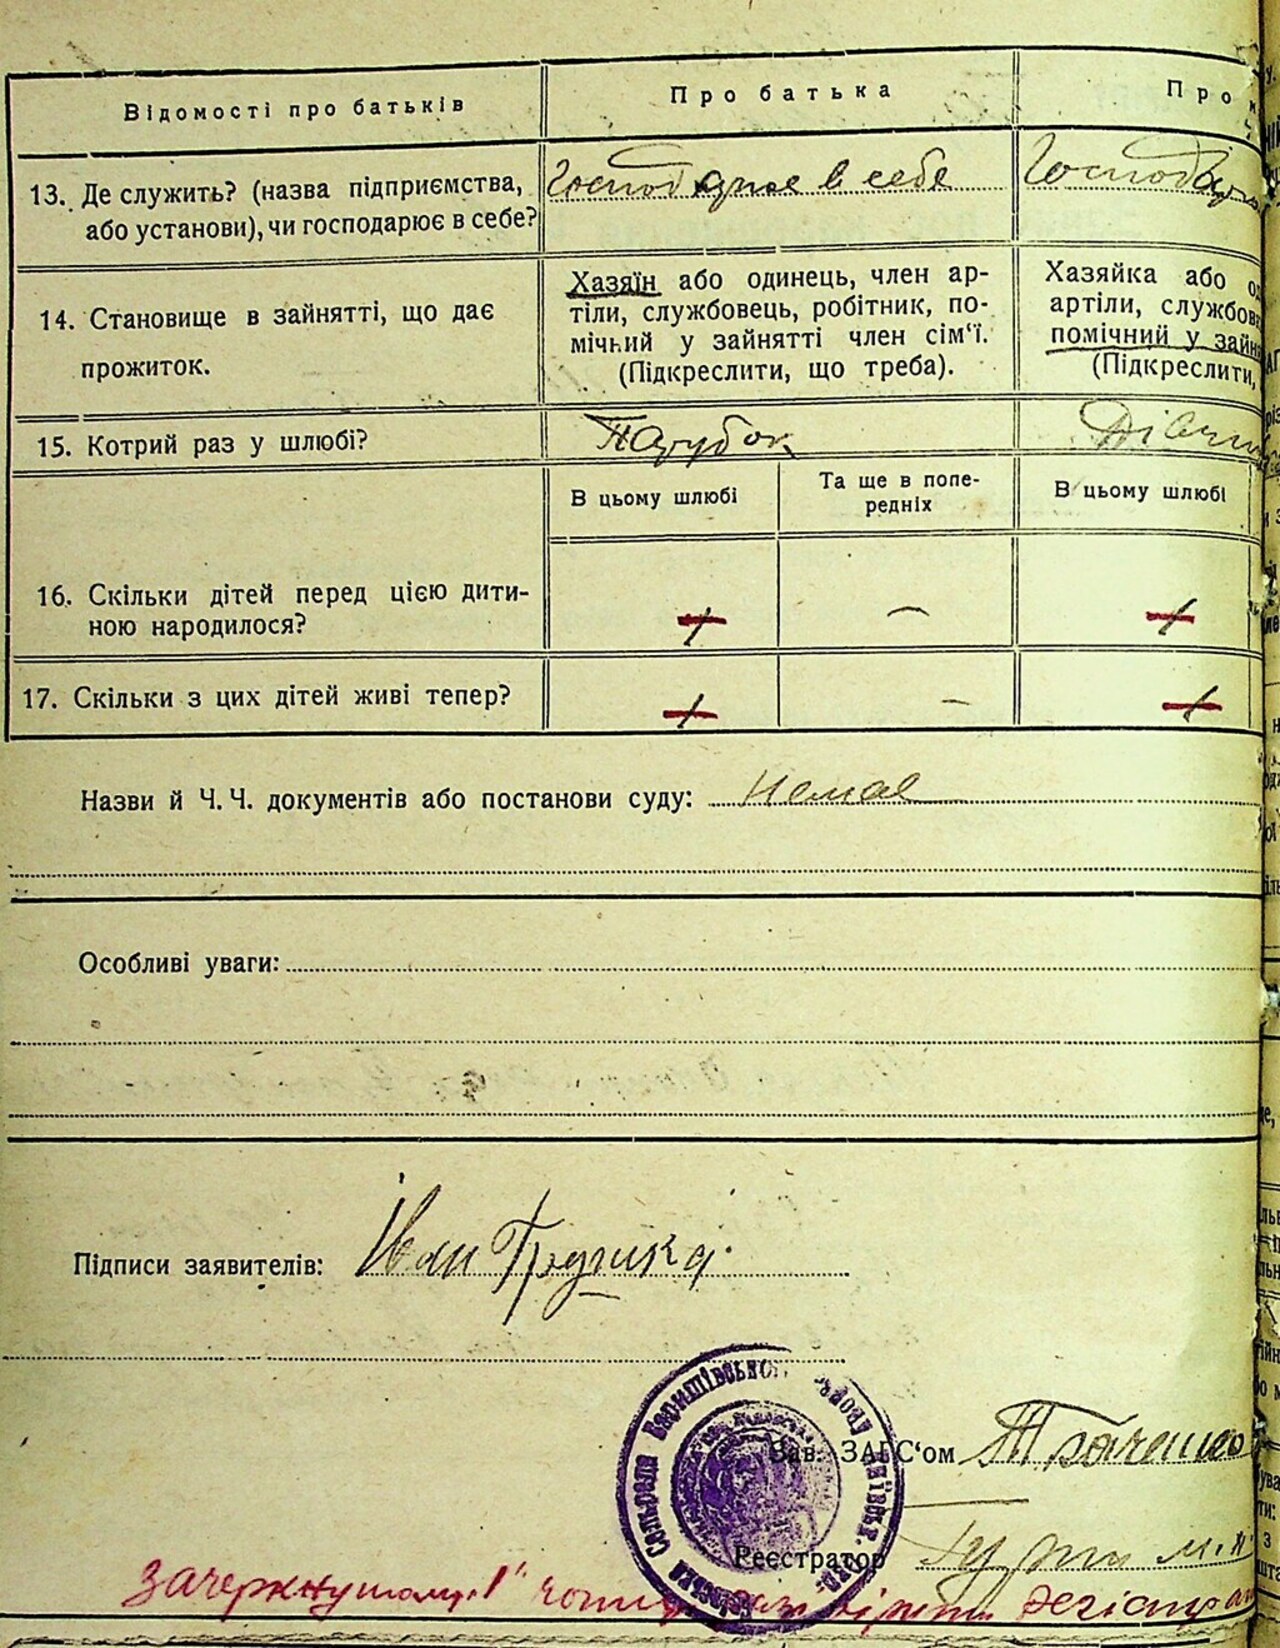 Відомості про батьків
Про батька
Про
13. Де служить? (назва підприємства,
або установи), чи господарює в себе?
Господарює в себе
Господар
14. Становище в зайнятті, що дає
прожиток.
Хазяїн або одинець, член ар-
тіли, службовець, робітник, по-
мічний у зайнятті член сім'ї.
(Підкреслити, що треба).
Хазяйка або
артіли, службов
помічний у зайн
(Підкреслити,
15. Котрий раз у шлюбі?
Парубок
Дівчи
В цьому шлюбі
Та ще в попе-
редніх
В цьому шлюбі
16. Скільки дітей перед цією дити-
ною народилося?
—
17. Скільки з цих дітей живі тепер?
—
Назви й Ч. Ч. документів або постанови суду: Немає
Особливі уваги:
Підписи заявителів: Іван
Сільрада Баришівського району
Зав. ЗАГС'ом Ткаченко
Реєстратор